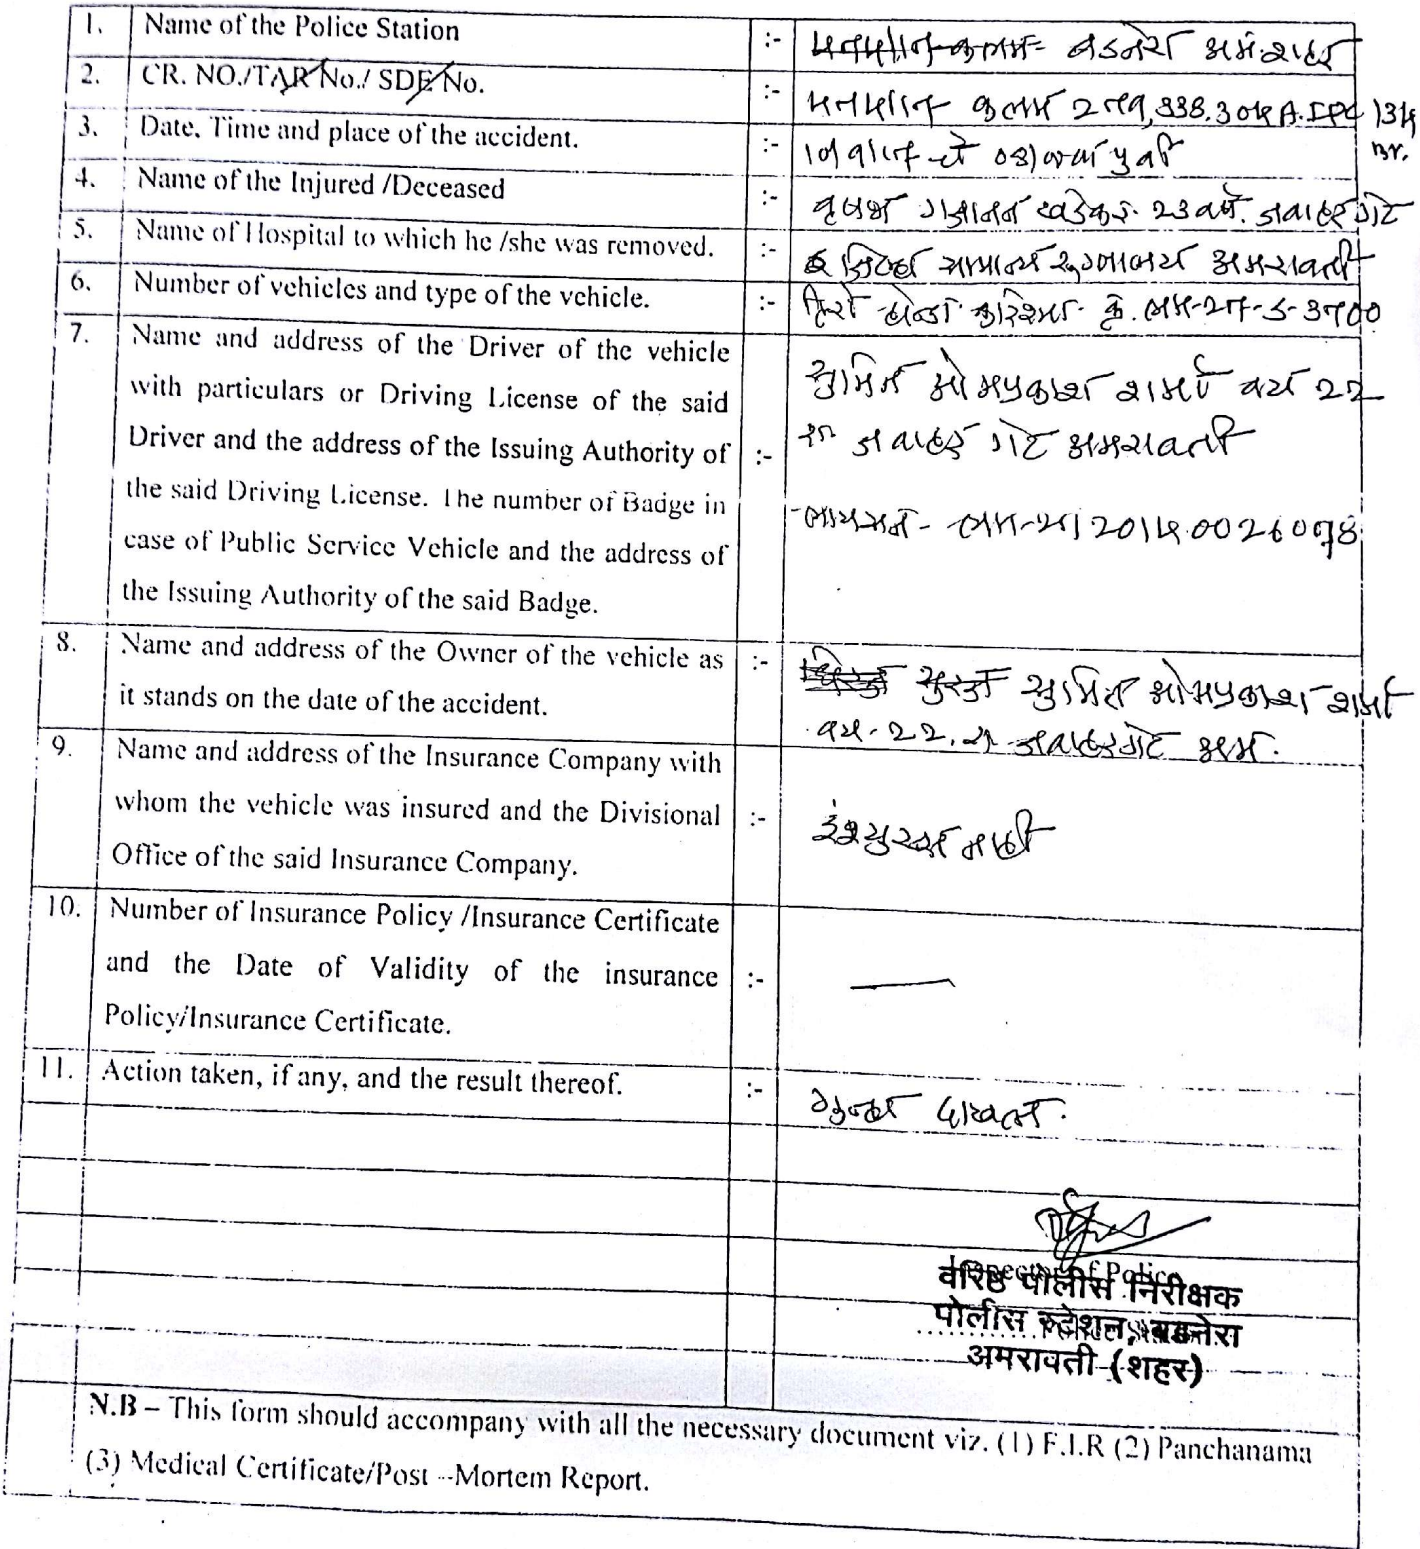 1. Name of the Police Station :- बडनेरा अम. शहर
2. CR. NO./TAR No./ SDE No. :- कलम 279, 338. 304 A. IPC 134
3. Date, Time and place of the accident. :-
4. Name of the Injured /Deceased :- वृषभ गजानन खडेकर 23 वर्षे. जवाहर गेट
5. Name of Hospital to which he /she was removed. :- जिल्हा सामान्य रुग्णालय अमरावती
6. Number of vehicles and type of the vehicle. :- हिरो होन्डा करिश्मा क्रं.
7. Name and address of the Driver of the vehicle
with particulars or Driving License of the said
Driver and the address of the Issuing Authority of :-
the said Driving License. The number of Badge in
case of Public Service Vehicle and the address of
the Issuing Authority of the said Badge.
सुमित ओमप्रकाश शर्मा वय 22
रा जवाहर गेट अमरावती
लायसन -
8. Name and address of the Owner of the vehicle as :-
it stands on the date of the accident.
सुमित ओमप्रकाश शर्मा
वय. 22. रा जवाहरगेट अम.
9. Name and address of the Insurance Company with
whom the vehicle was insured and the Divisional :-
Office of the said Insurance Company.
इंश्युरन्स नाही
10. Number of Insurance Policy /Insurance Certificate
and the Date of Validity of the insurance :- —
Policy/Insurance Certificate.
11. Action taken, if any, and the result thereof. :- गुन्हा दाखल.
Inspector of Police
वरिष्ठ पोलीस निरीक्षक
पोलीस स्टेशन, बडनेरा
अमरावती (शहर)
N.B – This form should accompany with all the necessary document viz. (1) F.I.R (2) Panchanama
(3) Medical Certificate/Post –Mortem Report.